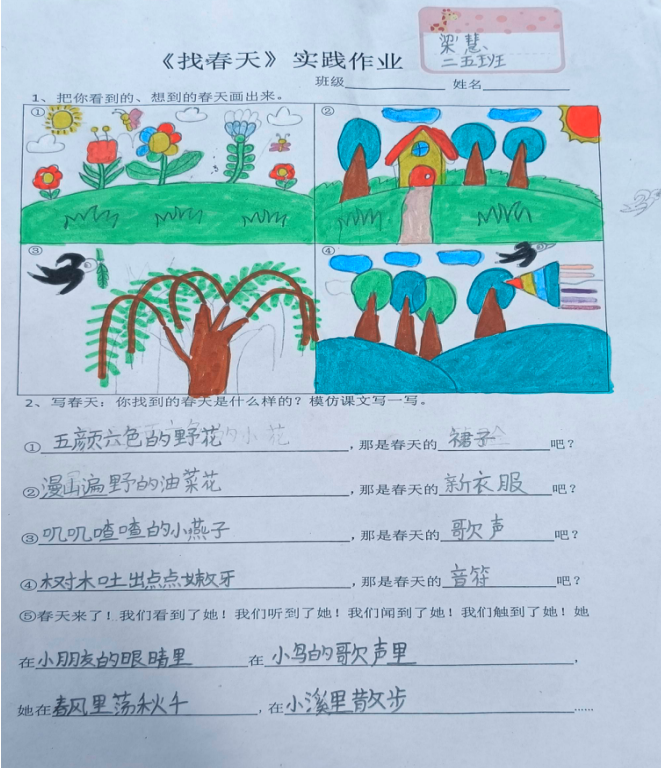 梁慧
二五班
《找春天》实践作业
班级 姓名
1、把你看到的、想到的春天画出来。
①
②
③
④
2、写春天：你找到的春天是什么样的？模仿课文写一写。
①五颜六色的野花，那是春天的裙子吧？
②漫山遍野的油菜花，那是春天的新衣服吧？
③叽叽喳喳的小燕子，那是春天的歌声吧？
④树木吐出点点嫩牙，那是春天的音符吧？
⑤春天来了！我们看到了她！我们听到了她！我们闻到了她！我们触到了她！她
在小朋友的眼睛里在小鸟的歌声里，
她在春风里荡秋千，在小溪里散步……